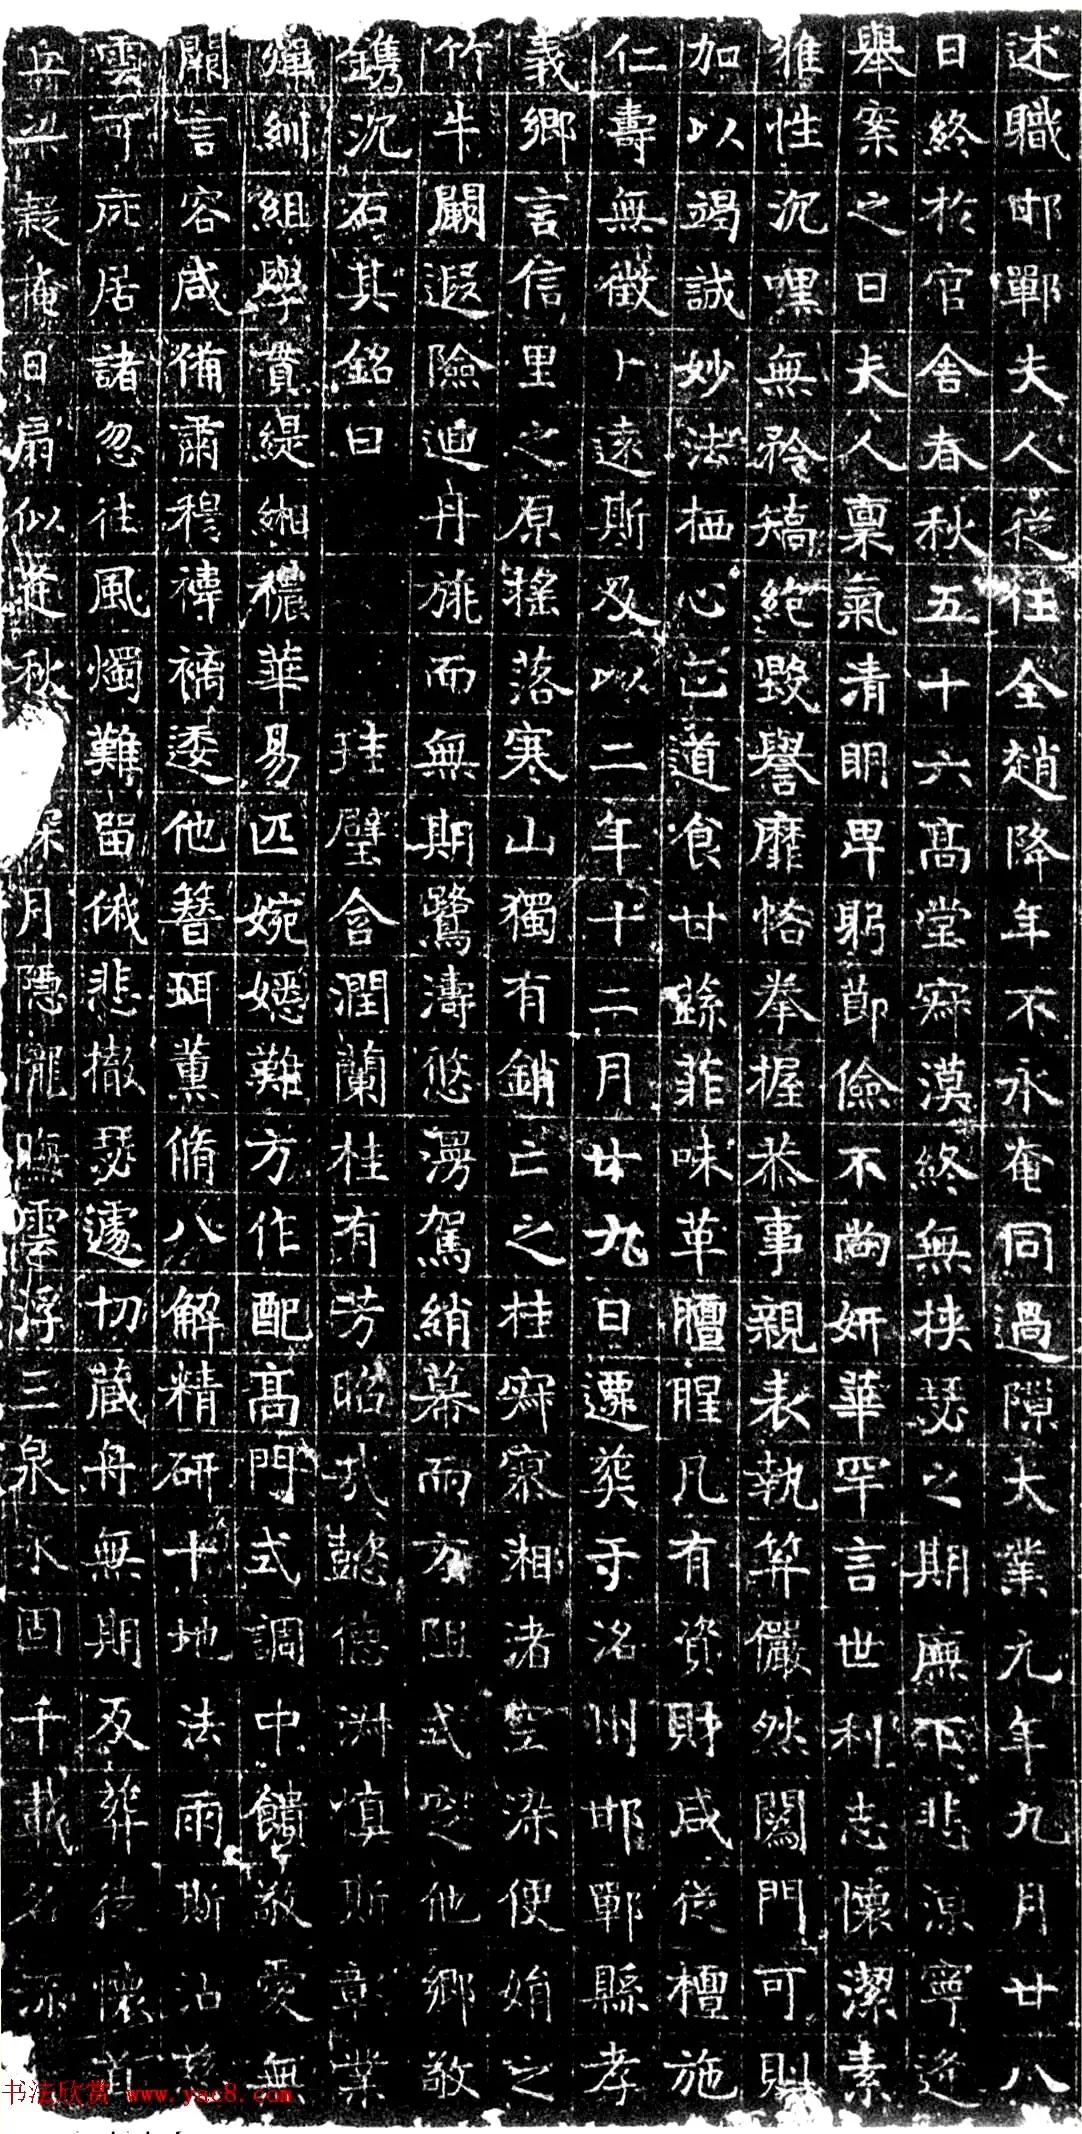 述職邯鄲夫人從任全趙降年不永奄同過隙大業元年九月廿八
日終於官舍春秋五十六高堂寂漠終無挾瑟之期廡下悲涼寧逐
舉案之日夫人稟氣清明卑躬節儉不尚妍華罕言世利志懷潔素
雅性沉嘿無矜矯絕毀譽靡悋拳握恭事親表執笲儼然闔門可則
加以竭誠妙法栖心正道食甘蔬菲味革膻腥凡有資財咸從檀施
仁壽無徵卜遠斯及以二年十二月廿九日遷葬于洺州邯鄲縣孝
義鄉言信里之原搖落寒山獨有銷亡之桂寂寞湘渚空染便娟之
竹牛闞遐險迴丹旐而無期鷺濤悠漫駕綃幕而方阻式窆他鄉敬
鐫沉石其銘曰 挂璧含潤蘭桂有芳昭哉懿德淋慎斯彰業
緝紃組學貫緹緗穠華易匹婉嬺難方作配高門式調中饋敬愛無
闕言容咸備肅穆褘褕逶他簪珥薰脩八解精研十地法雨斯沾慈
雲可庇居諸忽往風燭難留俄悲撤瑟遽切藏舟無期反葬徒懷首
丘 穀掩日扃似筵秋 深月隱隴晦雲浮三泉永固千載名流
书法欣赏 www.yac8.com